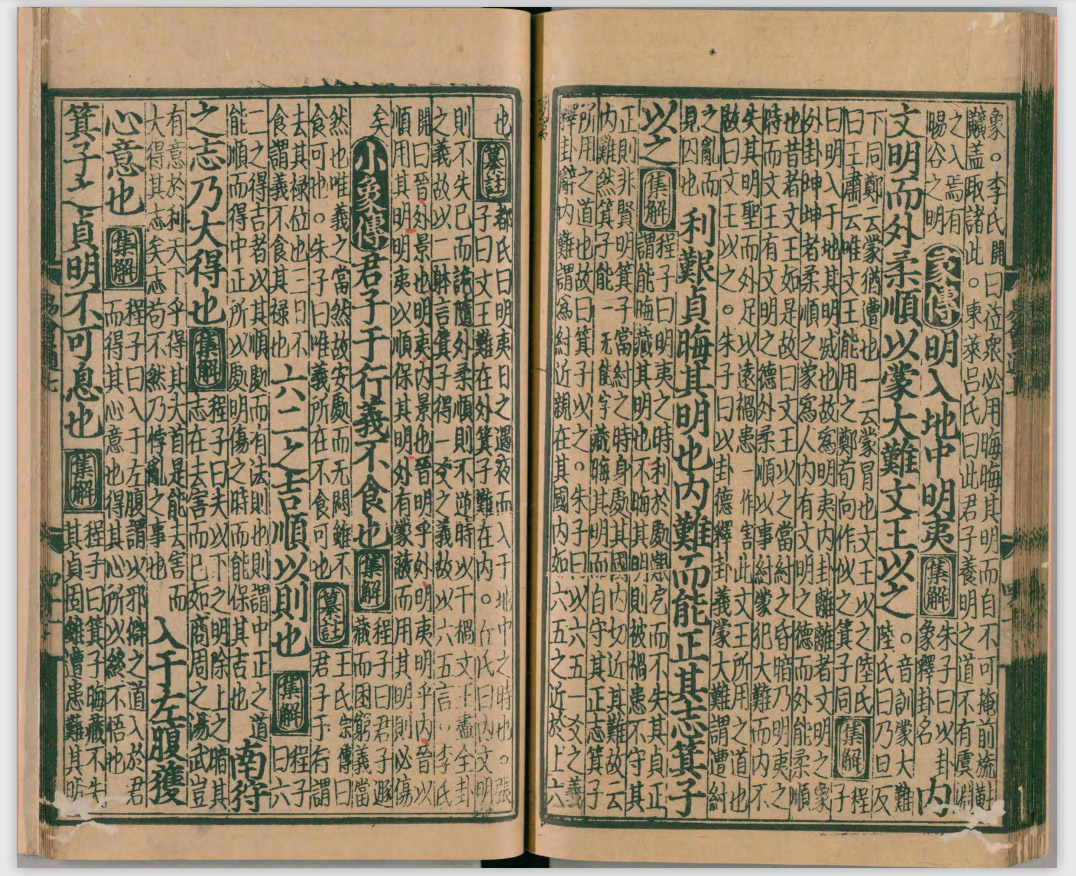 象。李氏開曰涖衆必用晦晦其明而自不可掩前旒黈
纊蓋取諸此。東萊呂氏曰此君子養明之道不有虞淵
之入焉有
暘谷之明
彖傳 明入地中明夷
集解 朱子曰以卦
象釋卦名
內
文明而外柔順以蒙大難文王以之
。音訓蒙大難
陸氏曰乃旦反
下同鄭云蒙猶遭也一云蒙冒也文王以之陸氏
曰王肅云唯文王能用之鄭荀向作似之箕子同
集解 程子
曰明入于地其明滅也故為明夷內卦離離者文明之象
外卦坤坤者柔順之象為人內有文明之德而外能柔順
也昔者文王如是故曰文王以之當紂之昏暗乃明夷之
時而文王有文明之德外柔順以事紂蒙犯大難而內不
失其明聖而外足以遠禍患一作害此文王所用之道也
故曰文王以之。朱子曰以卦德釋卦義蒙大難謂遭紂
之亂而
見囚也
利艱貞晦其明也內難而能正其志箕子
以之
集解 程子曰明夷之時利於處艱厄而不失其貞正
謂能晦藏其明也不晦其明則被禍患不守其
正則非賢明箕子當紂之時身處其國內切近其難故云
內難然箕子能一无能字藏晦其明而自守其正志箕子
所用之道也故曰箕子以之。朱子曰以六五一爻之義
釋卦辭內難謂為紂近親在其國內如六五之近於上六
也
纂註 都氏曰明夷日之遇夜而入于地中之時也。張
子曰文王難在外箕子難在內。丘氏曰內文明
則不失己而詭隨外柔順則不逆時以干禍文王盡全卦
之義故以二體言箕子得一爻之義故以六五言。李氏
開曰晉外景也明夷內景也晉明乎外明夷明乎內晉以
順用其明明夷以順保其明外有蒙蔽而用其明則必傷
矣
小象傳 君子于行義不食也
集解 程子曰君子遯
藏而困窮義當
然也唯義之當然故安處而无悶雖不
食可也。朱子曰唯義所在不食可也
纂註 王氏宗傳曰
君子于行謂
去其祿位也三日不
食謂義不食其祿也
六二之吉順以則也
集解 程子
曰六
二之得吉者以其順處而有法則也則謂中正之道
能順而得中正所以處明傷之時而能保其吉也
南狩
之志乃大得也
集解 程子曰夫以下之明除上之暗其
志在去害而已如商周之湯武豈
有意於利天下乎得其大首是能去害而
大得其志矣志苟不然乃悖亂之事也
入于左腹獲
心意也
集解 程子曰入于左腹謂以邪僻之道入於君
而得其心意也得其心所以終不悟也
箕子之貞明不可息也
集解 程子曰箕子晦藏不失
其貞固雖遭患難其明